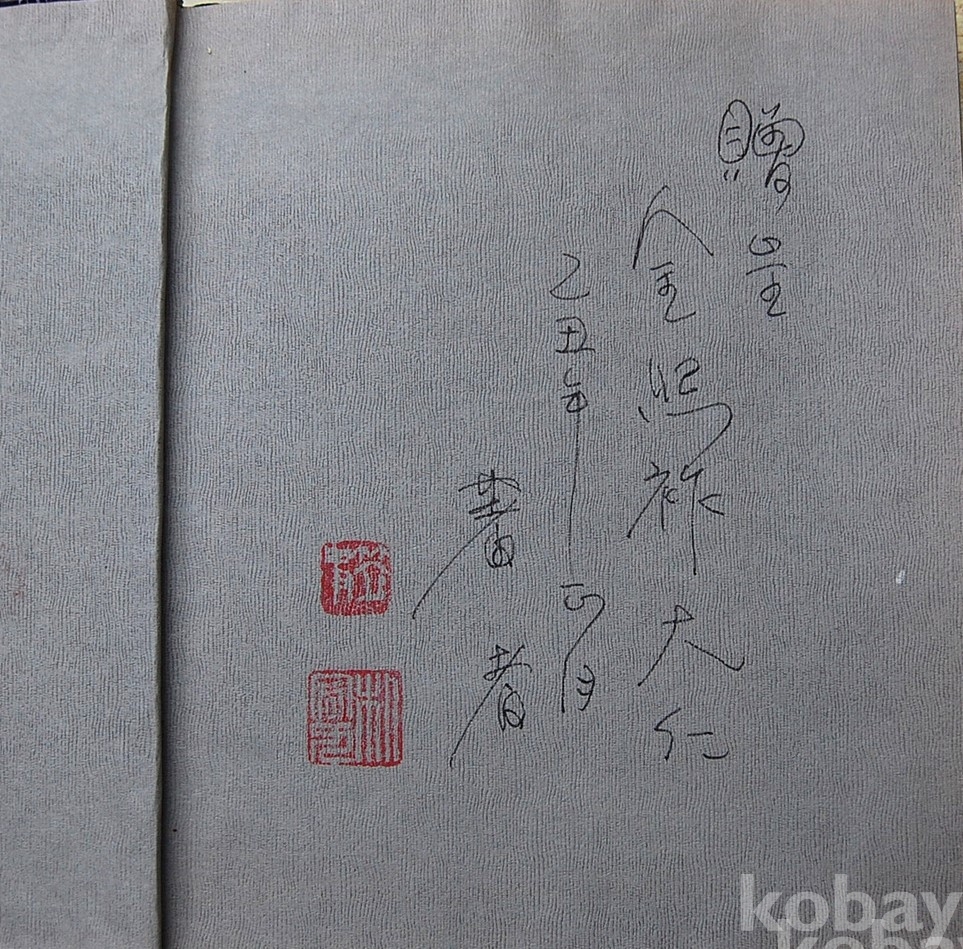 贈呈
金熙祚大仁
乙丑年 四月
著者
kobay